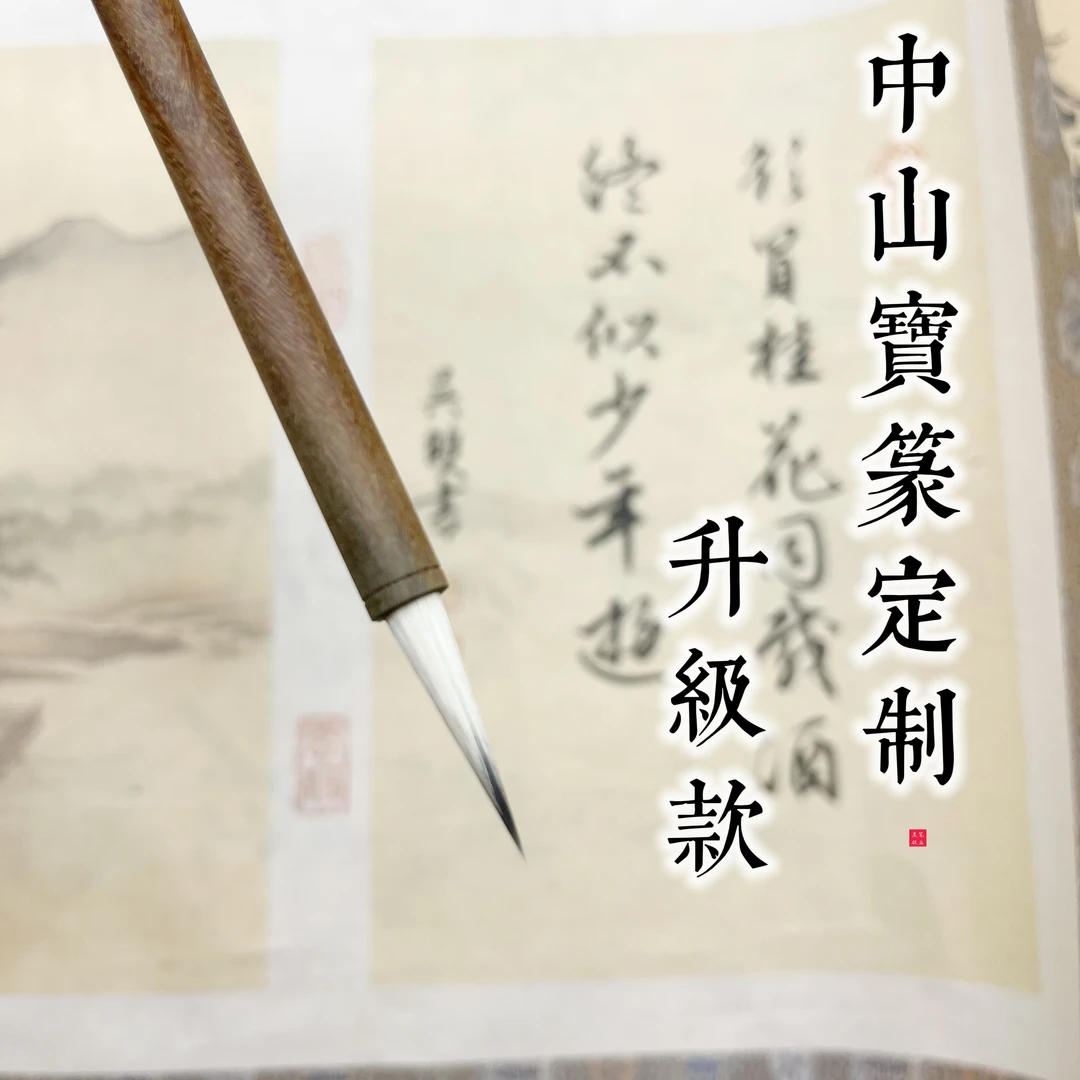 中山寶篆定制
升級款
欲買桂花同載酒
終不似少年遊